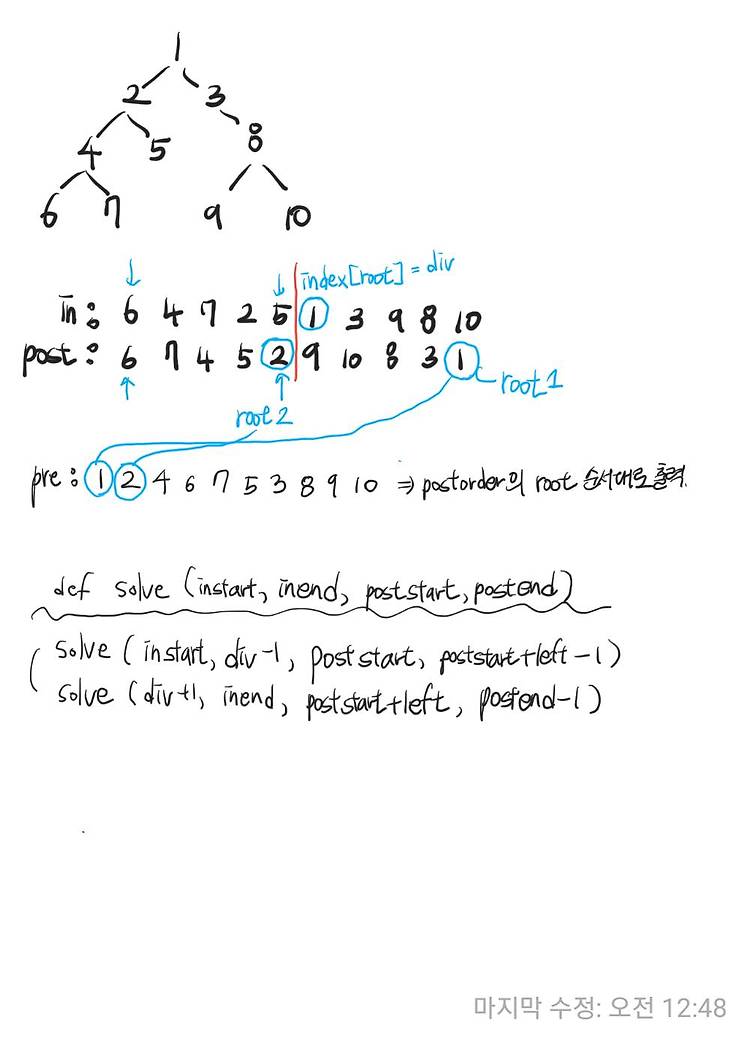 1
2 3
4 5 8
6 7 9 10
index[root] = div
in : 6 4 7 2 5 1 3 9 8 10
post : 6 7 4 5 2 9 10 8 3 1
root1
root2
pre : 1 2 4 6 7 5 3 8 9 10 ⇒ postorder의 root 순서대로 출력.
def solve (instart, inend, poststart, postend)
solve (instart, div-1, poststart, poststart+left-1)
solve (div+1, inend, poststart+left, postend-1)
마지막 수정: 오전 12:48